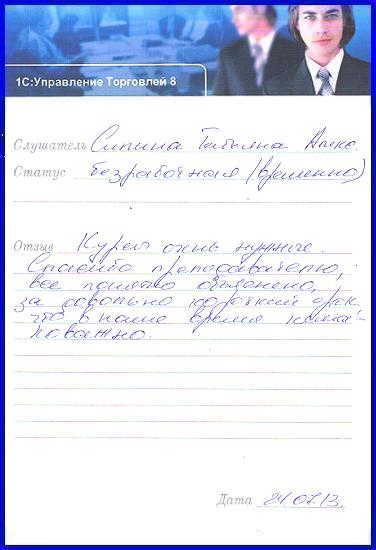 1С:Управление Торговлей 8
Слушатель Сипина Татьяна Алекс.
Статус безработная (временно)
Отзыв Курсы очень нужные.
Спасибо преподавателю,
все понятно объяснено,
за довольно короткий срок
что в наше время нема-
ловажно.
Дата 24.07.13.